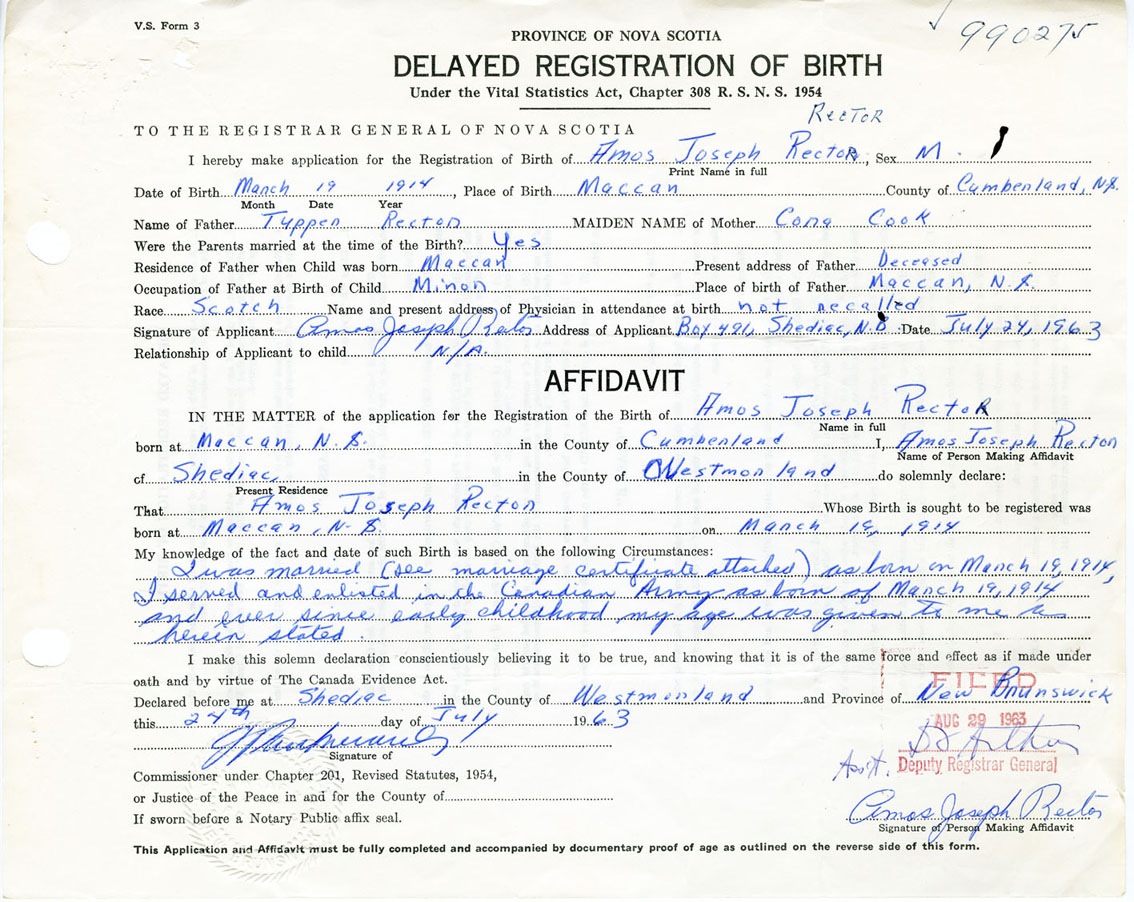 V.S. Form 3
990275
PROVINCE OF NOVA SCOTIA
DELAYED REGISTRATION OF BIRTH
Under the Vital Statistics Act, Chapter 308 R. S. N. S. 1954
RECTOR
TO THE REGISTRAR GENERAL OF NOVA SCOTIA
I hereby make application for the Registration of Birth of Amos Joseph Rector, Sex M.
Print Name in full
Date of Birth March 19 1914, Place of Birth Maccan County of Cumberland, N.S.
Month Date Year
Name of Father Tupper Rector MAIDEN NAME of Mother Cora Cook
Were the Parents married at the time of the Birth? Yes
Residence of Father when Child was born Maccan Present address of Father Deceased
Occupation of Father at Birth of Child Minor Place of birth of Father Maccan, N.S.
Race Scotch Name and present address of Physician in attendance at birth not recalled
Signature of Applicant Amos Joseph Rector Address of Applicant Box 491, Shediac, N.B. Date July 24, 1963
Relationship of Applicant to child N/A.
AFFIDAVIT
IN THE MATTER of the application for the Registration of the Birth of Amos Joseph Rector
Name in full
born at Maccan, N.S. in the County of Cumberland I, Amos Joseph Rector
Name of Person Making Affidavit
of Shediac, in the County of Westmorland do solemnly declare:
Present Residence
That Amos Joseph Rector Whose Birth is sought to be registered was
born at Maccan, N.S. on March 19, 1914
My knowledge of the fact and date of such Birth is based on the following Circumstances:
I was married (see marriage certificate attached) as born on March 19, 1914,
I served and enlisted in the Canadian Army as born of March 19, 1914
and ever since early childhood my age was given to me as
herein stated.
I make this solemn declaration conscientiously believing it to be true, and knowing that it is of the same force and effect as if made under
oath and by virtue of The Canada Evidence Act.
FILED
Declared before me at Shediac in the County of Westmorland and Province of New Brunswick
this 24th day of July 1963
AUG 29 1963
Signature of
Asst. Deputy Registrar General
Commissioner under Chapter 201, Revised Statutes, 1954,
or Justice of the Peace in and for the County of
Amos Joseph Rector
If sworn before a Notary Public affix seal.
Signature of Person Making Affidavit
This Application and Affidavit must be fully completed and accompanied by documentary proof of age as outlined on the reverse side of this form.